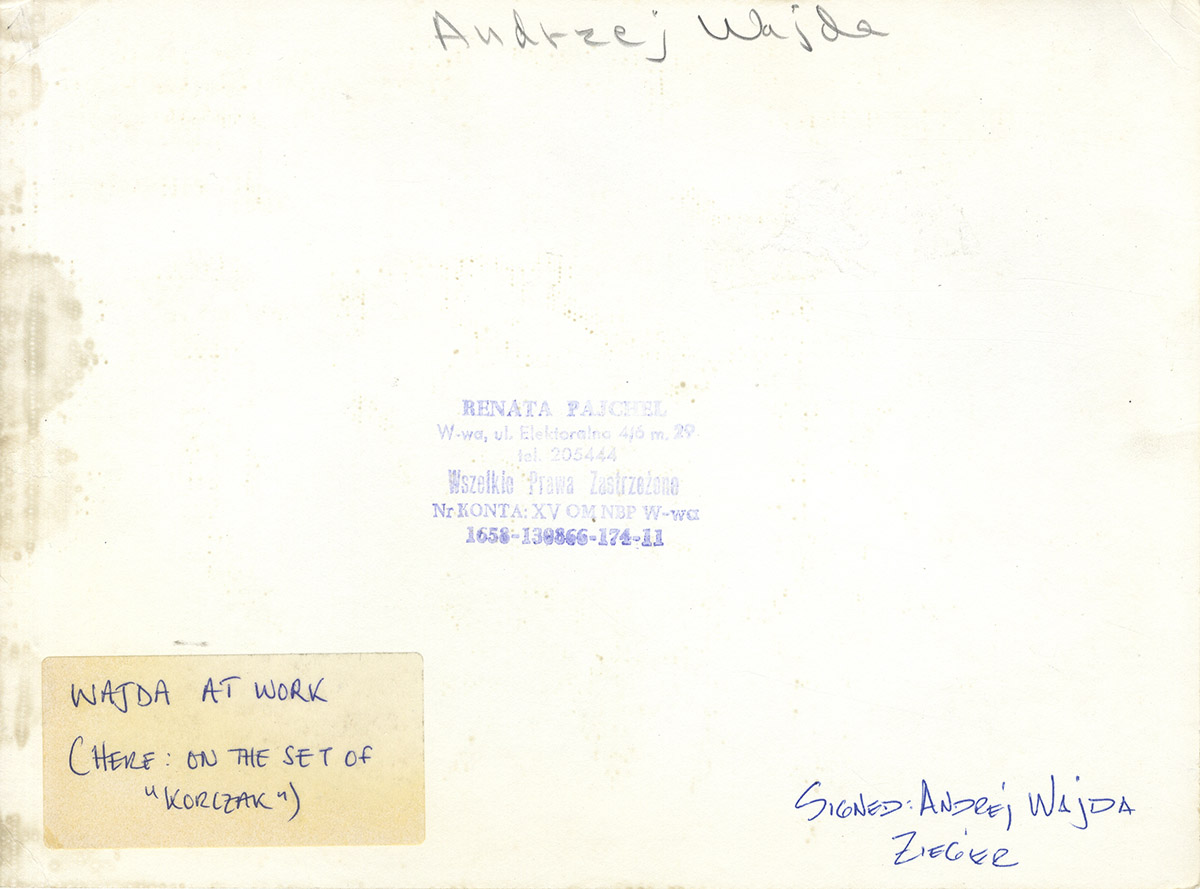 Andrzej Wajda
RENATA PAJCHEL
W-wa, ul. Elektoralna 4/6 m. 29
tel. 205444
Wszelkie Prawa Zastrzeżone
Nr KONTA: XV OM NBP W-wa
1658-130866-174-11
WAJDA AT WORK
(HERE: ON THE SET OF
"KORCZAK")
SIGNED: ANDREJ WAJDA